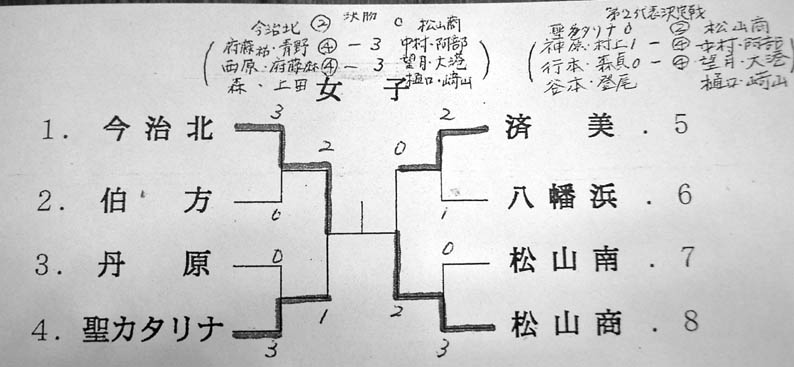 決勝
今治北 ② 0 松山商
府藤祐・青野 ④ － 3 中村・阿部
西原・府藤麻 ④ － 3 望月・大港
森・上田 樋口・崎山
第2代表決定戦
聖カタリナ 0 ② 松山商
神原・村上 1 － ④ 中村・阿部
行本・森貞 0 － ④ 望月・大港
谷本・登尾 樋口・崎山
女子
1. 今治北 3 2 済美 . 5
2 0
2. 伯方 0 1 八幡浜 . 6
3. 丹原 0 0 松山南 . 7
1 2
4. 聖カタリナ 3 3 松山商 . 8